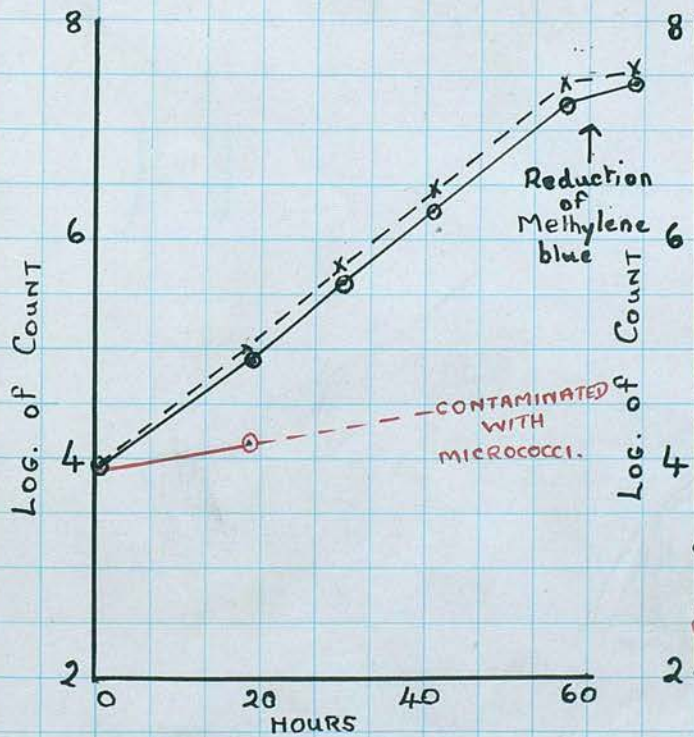 8
6
4
2
LOG. of COUNT
0 20 40 60
HOURS
Reduction
of
Methylene
blue
CONTAMINATED
WITH
MICROCOCCI.
8
6
4
2
LOG. of COUNT